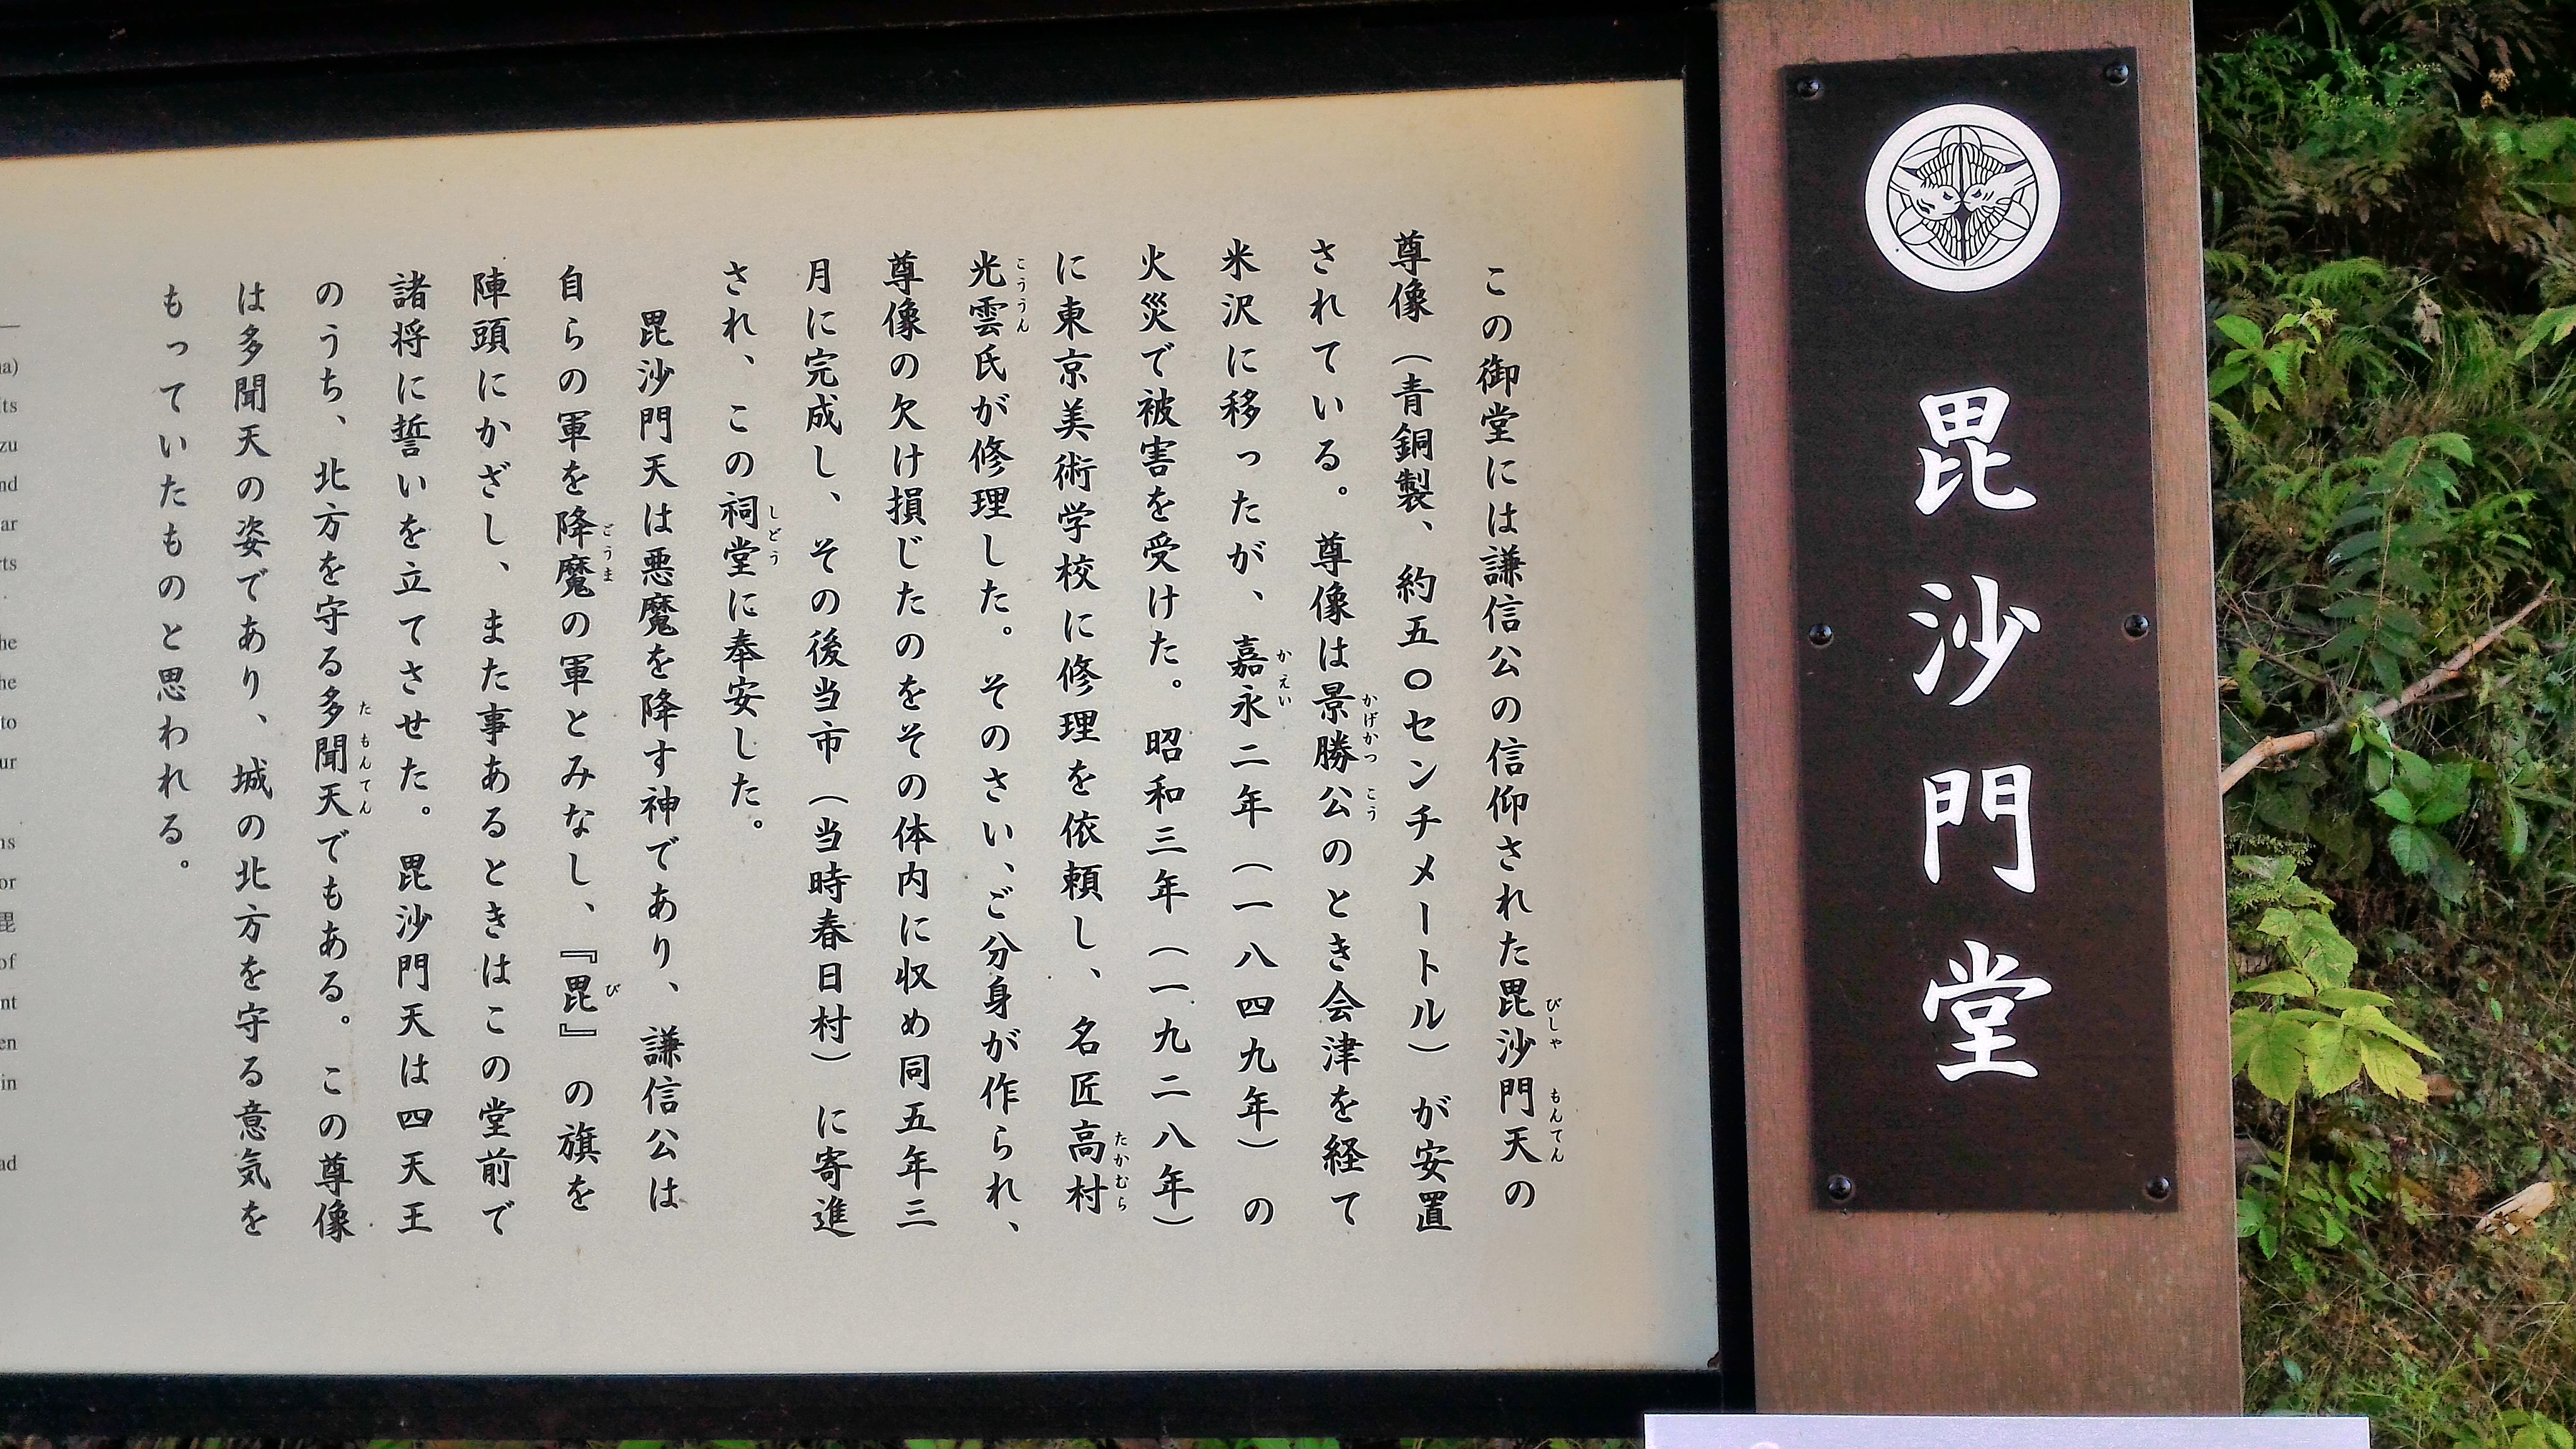 毘沙門堂
この御堂には謙信公の信仰された毘沙門天の
尊像（青銅製、約五〇センチメートル）が安置
されている。尊像は景勝公のとき会津を経て
米沢に移ったが、嘉永二年（一八四九年）の
火災で被害を受けた。昭和三年（一九二八年）
に東京美術学校に修理を依頼し、名匠高村
光雲氏が修理した。そのさい、ご分身が作られ、
尊像の欠け損じたのをその体内に収め同五年三
月に完成し、その後当市（当時春日村）に寄進
され、この祠堂に奉安した。
毘沙門天は悪魔を降す神であり、謙信公は
自らの軍を降魔の軍とみなし、『毘』の旗を
陣頭にかざし、また事あるときはこの堂前で
諸将に誓いを立てさせた。毘沙門天は四天王
のうち、北方を守る多聞天でもある。この尊像
は多聞天の姿であり、城の北方を守る意気を
もっていたものと思われる。
びしゃもんてん
かげかつこう
かえい
たかむら
こううん
しどう
ごうま
び
たもんてん